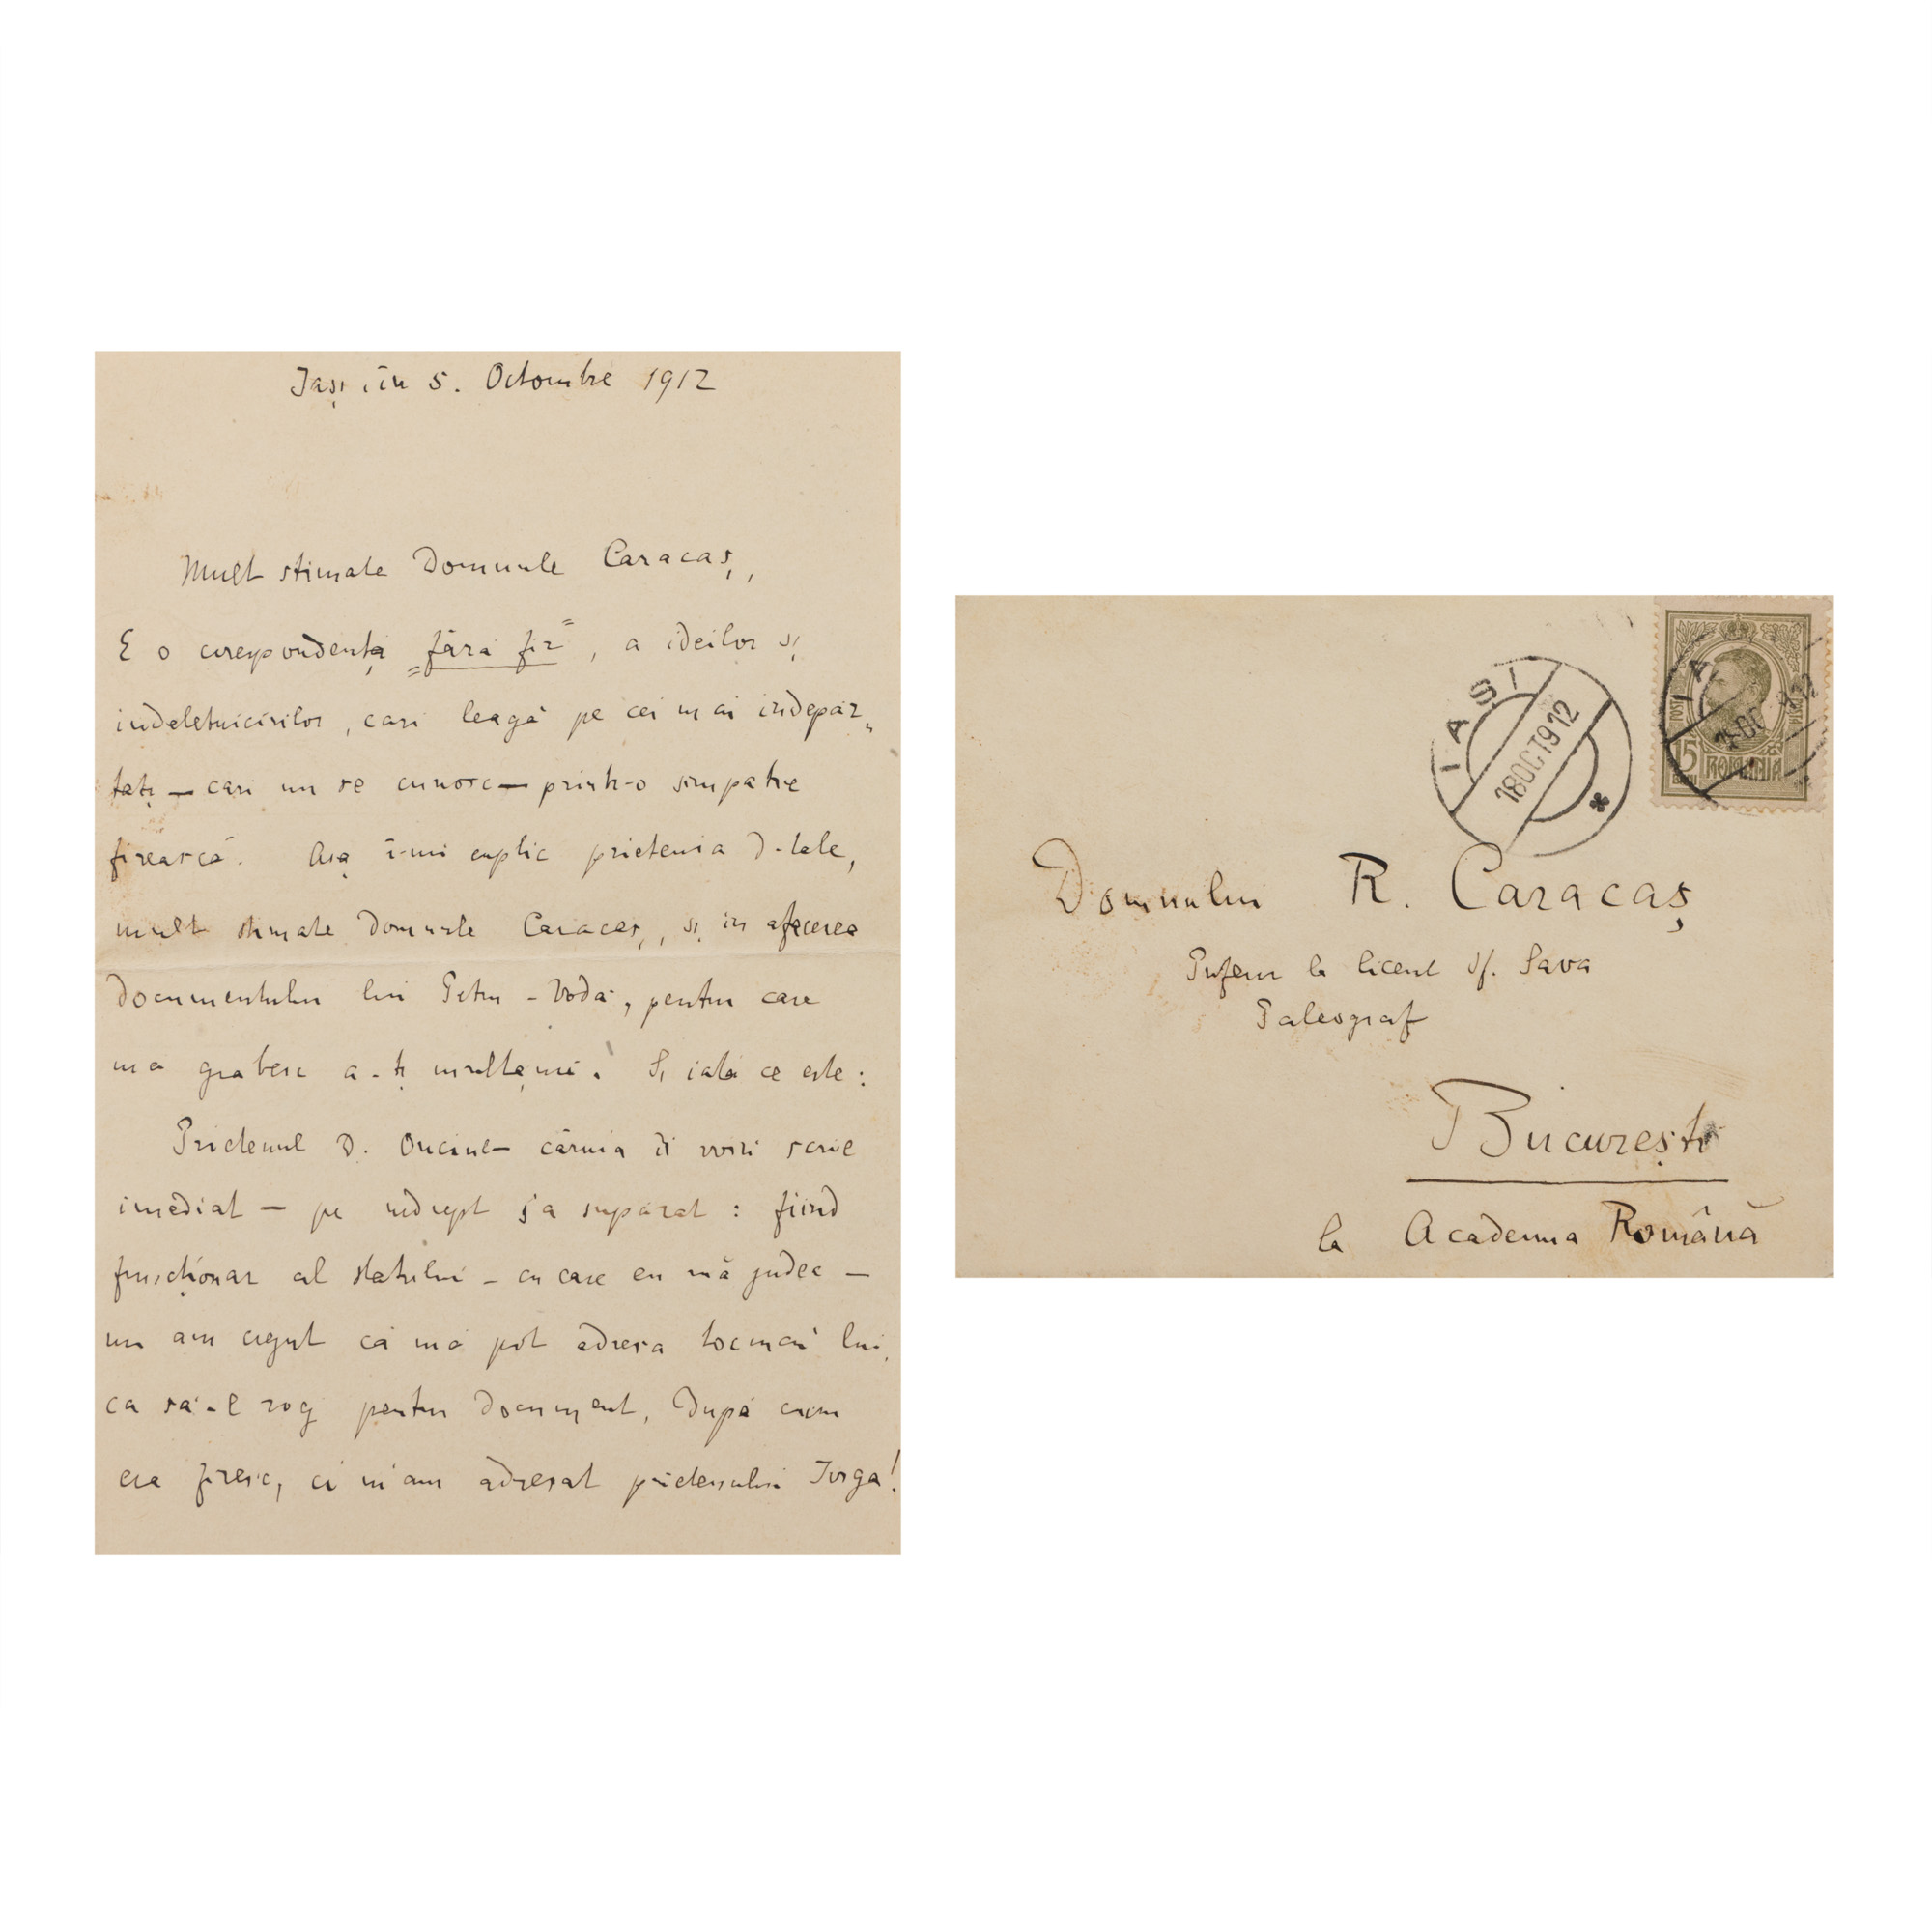 Iași, în 5. Octombre 1912
Mult stimate Domnule Caracaș,
E o corespondență „fără fir”, a ideilor și
îndeletnicirilor, cari leagă pe cei mai îndepăr„
tați — cari nu se cunosc — printr-o simpatie
firească. Așa î-mi explic prietenia D-tale,
mult stimate Domnule Caracaș, și în afacerea
documentului lui Petru-Vodă, pentru care
mă grăbesc a-ți mulțămi. Și iată ce este:
Prietenul D. Onciul — căruia îi voiu scrie
imediat — pe nedrept s'a supărat: fiind
funcționar al statului — cu care eu mă judec —
nu am crezut că mă pot adresa tocmai lui,
ca să-l rog pentru document, după cum
era firesc, ci m'am adresat prietenului Iorga!
IAȘI
18OCT912
IA
POSTA
15 BANI
ROMANIA
Domnului R. Caracaș
Profesor la liceul Sf. Sava
Paleograf
București
la Academia Română